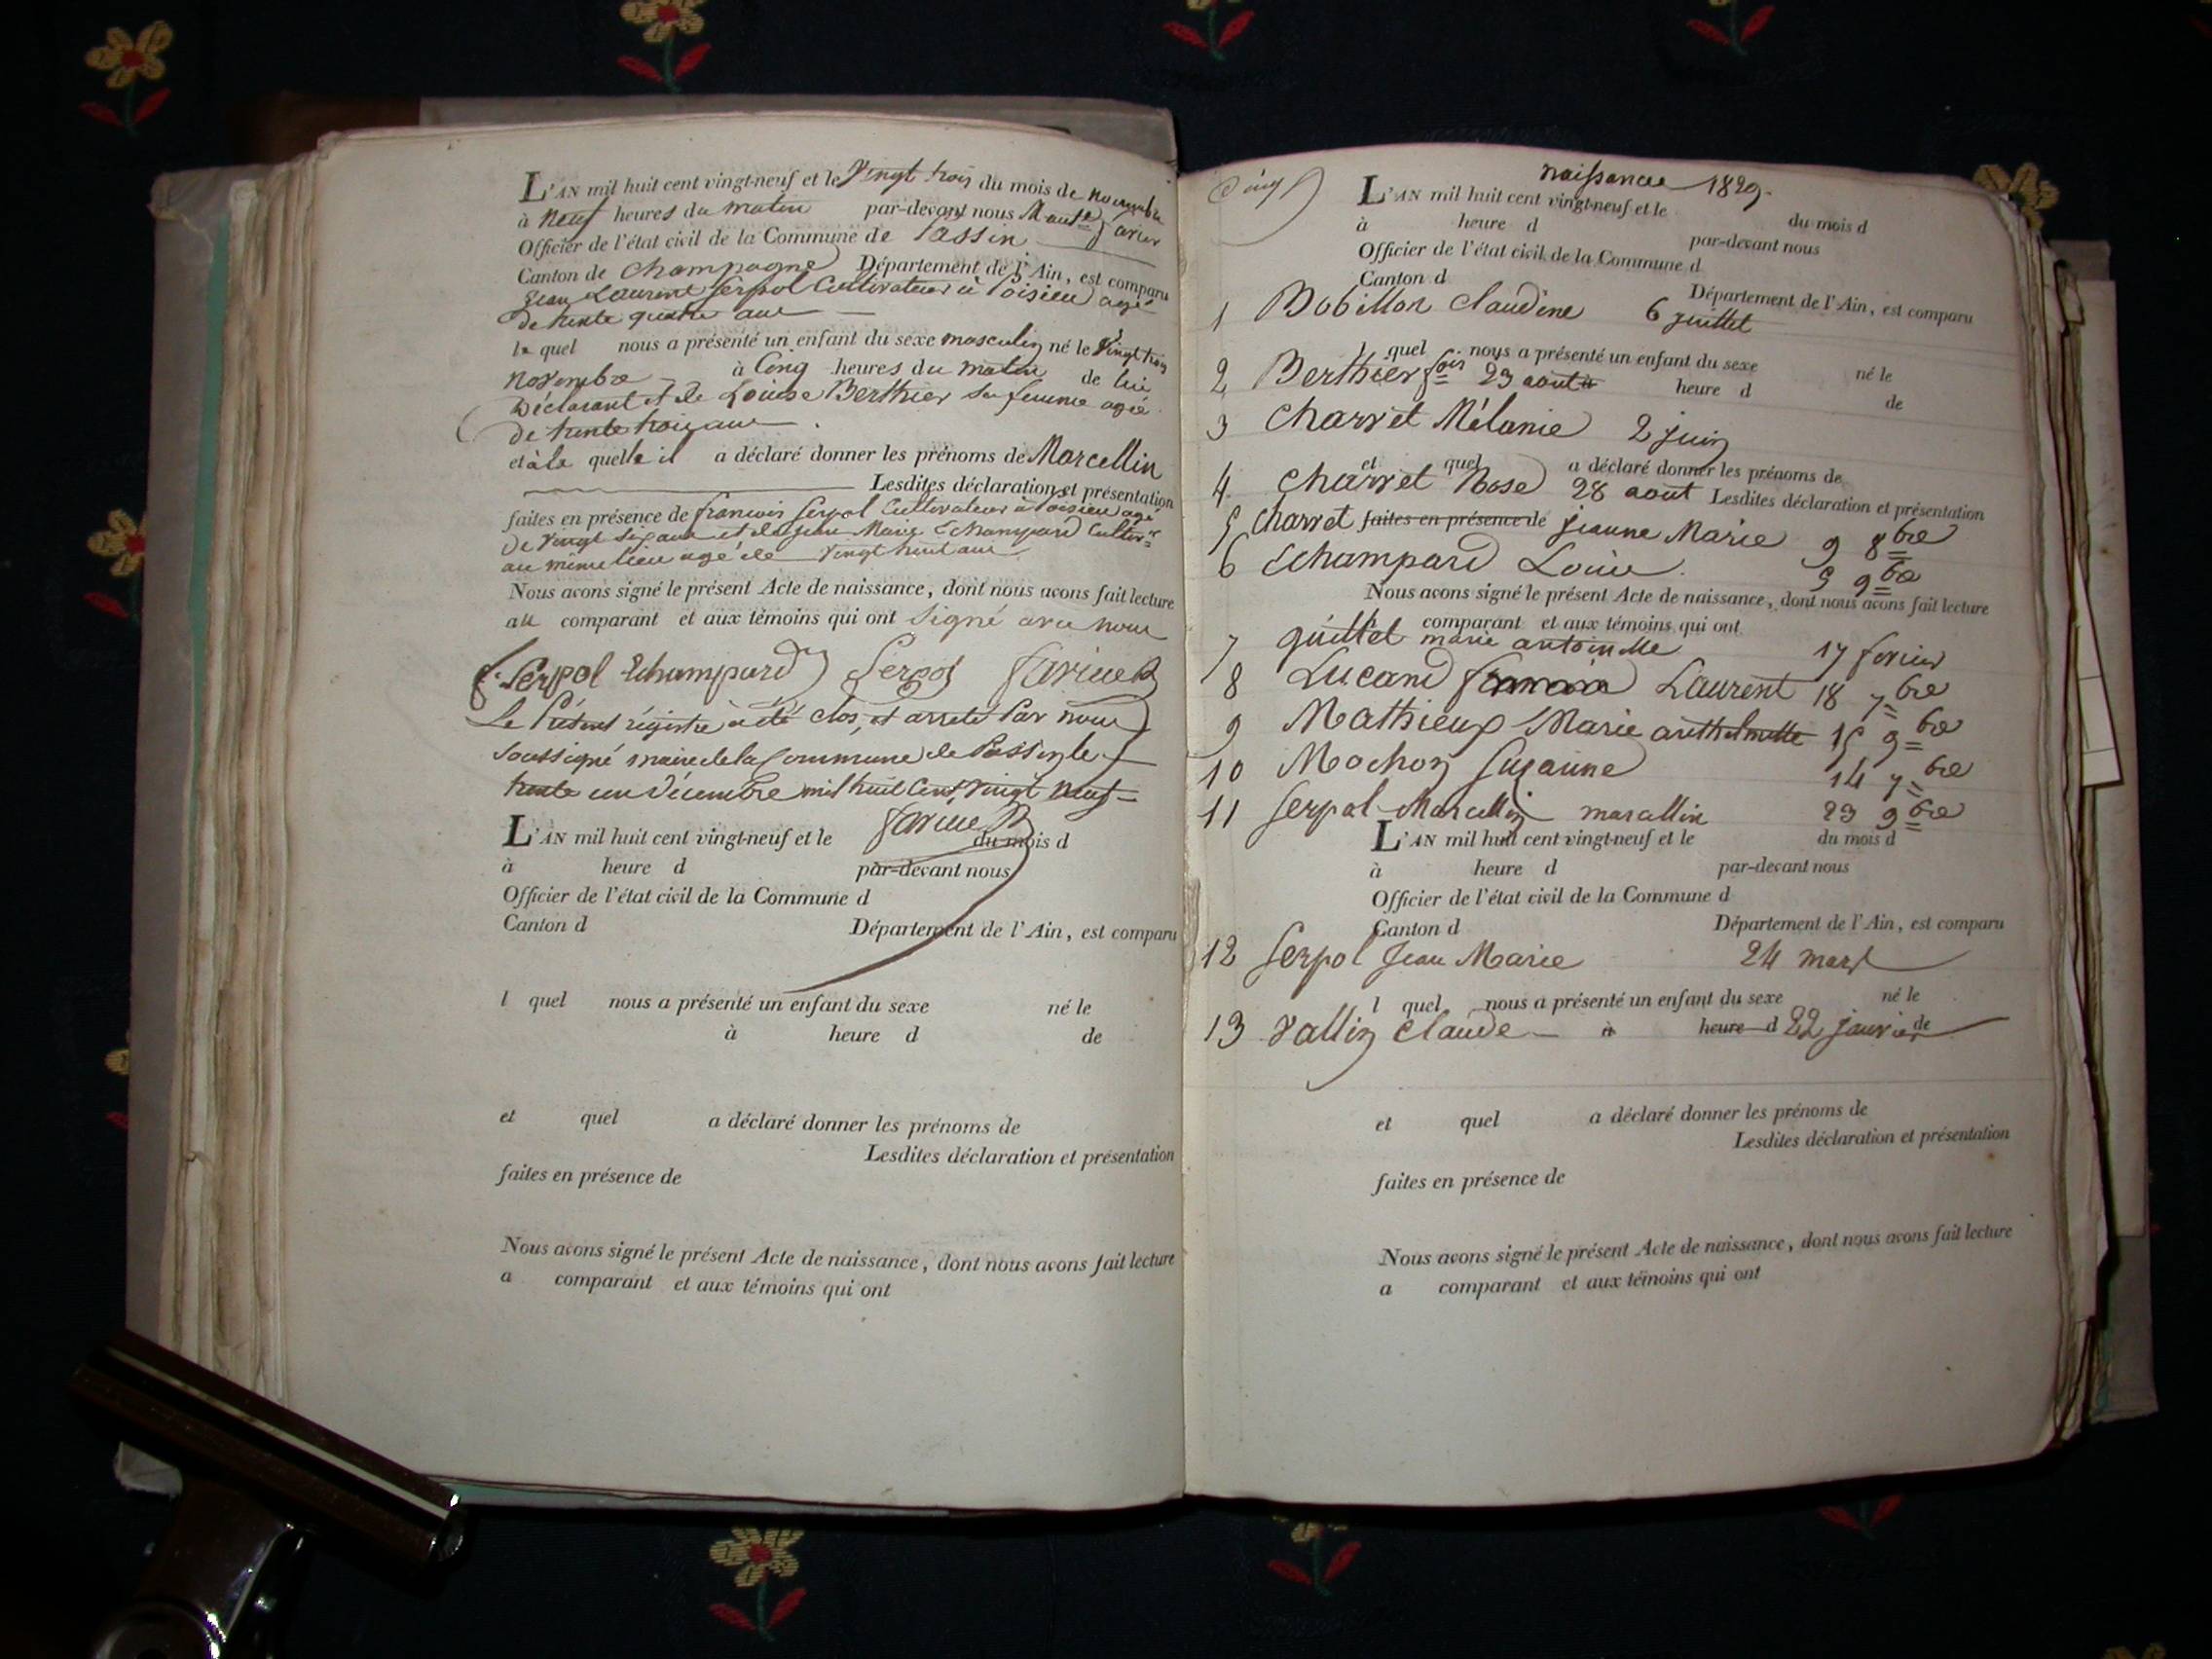 L'AN mil huit cent vingt-neuf et le Vingt trois du mois de novembre
à neuf heures du matin par-devant nous
Officier de l'état civil de la Commune de Passin
Canton de Champagne Département de l'Ain, est comparu
Jean Laurent Serpol Cultivateur à Poisieu agé
de trente quatre ans
le quel nous a présenté un enfant du sexe masculin né le Vingt trois
novembre à Cinq heures du matin de lui
Déclarant et de Louise Berthier sa femme agée
de trente trois ans
et à la quelle il a déclaré donner les prénoms de Marcellin
Lesdites déclaration et présentation
faites en présence de francois Serpol Cultivateur à Poisieu agé
De vingt six ans et de jean Marie Echampard Cultiv.r
au même lieu agé de vingt huit ans
Nous avons signé le présent Acte de naissance, dont nous avons fait lecture
au comparant et aux témoins qui ont Signé avec nous
f. Serpol Echampard Serpol
Le Présent régistre a été clos, et arreté Par nous
Soussigné maire de la Commune de Passin le
trente un Décembre mil huit Cent, vingt neuf
L'AN mil huit cent vingt-neuf et le du mois d
à heure d par-devant nous
Officier de l'état civil de la Commune d
Canton d Département de l'Ain, est comparu
l quel nous a présenté un enfant du sexe né le
à heure d de
et quel a déclaré donner les prénoms de
Lesdites déclaration et présentation
faites en présence de
Nous avons signé le présent Acte de naissance, dont nous avons fait lecture
a comparant et aux témoins qui ont
naissance 1829.
L'AN mil huit cent vingt-neuf et le du mois d
à heure d par-devant nous
Officier de l'état civil de la Commune d
Canton d Département de l'Ain, est comparu
1 Bobillon Claudine 6 juillet
l quel nous a présenté un enfant du sexe né le
2 Berthier fois 23 aout à heure d de
3 Charvet Mélanie 2 juin
et quel a déclaré donner les prénoms de
4. Charvet Rose 28 aout Lesdites déclaration et présentation
5 Charvet faites en présence de jeanne Marie 9 8bre
6 Echampard Louise. 5 9bre
Nous avons signé le présent Acte de naissance, dont nous avons fait lecture
comparant et aux témoins qui ont
7 guillet marie antoinette 17 fevrier
8 Lucand Laurent 18 7bre
9 Mathieux Marie anthelmette 15 9bre
10 Mochon Suzanne 14 7bre
11 Serpol Marcellin marcellin 23 9bre
L'AN mil huit cent vingt-neuf et le du mois d
à heure d par-devant nous
Officier de l'état civil de la Commune d
Canton d Département de l'Ain, est comparu
12 Serpol Jean Marie 24 mars
l quel nous a présenté un enfant du sexe né le
13 Vallin Claude à heure d 22 janvier de
et quel a déclaré donner les prénoms de
Lesdites déclaration et présentation
faites en présence de
Nous avons signé le présent Acte de naissance, dont nous avons fait lecture
a comparant et aux témoins qui ont